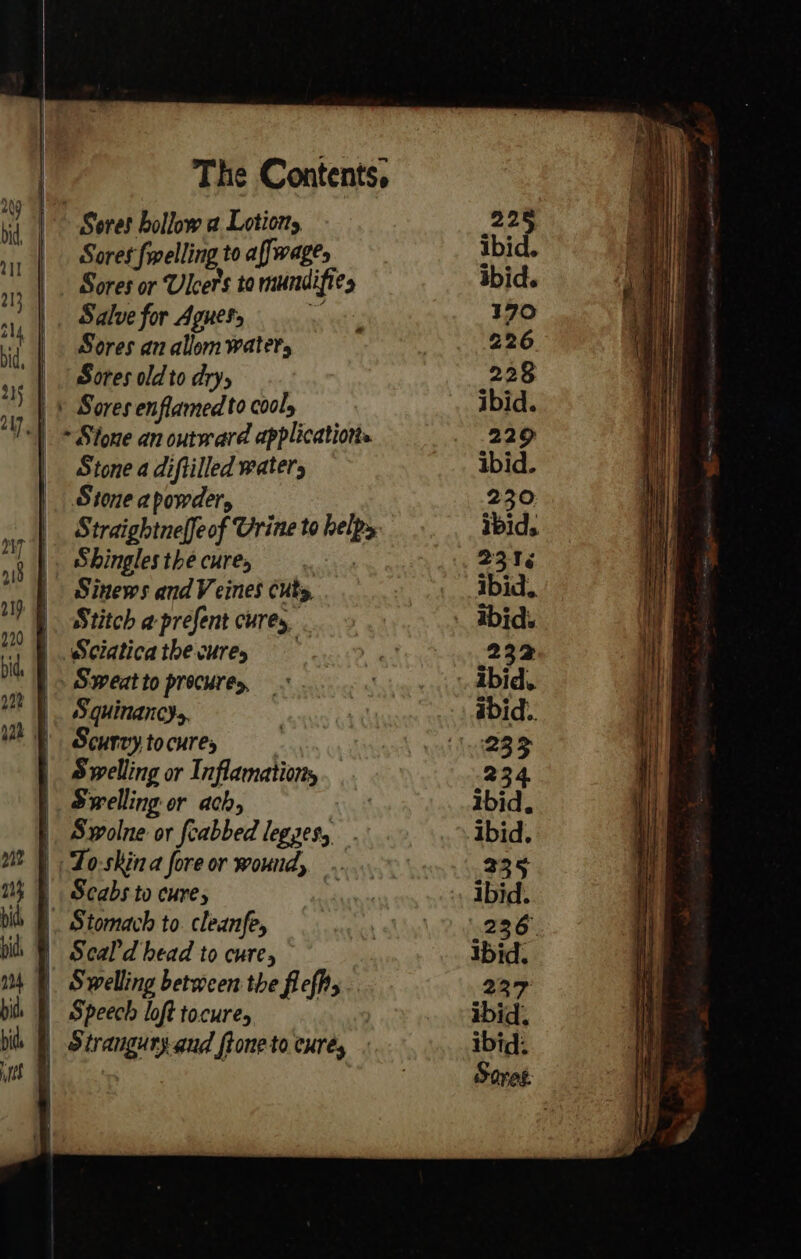 The Contents.
Sores hollow a Lotion, 225
Sores ſwelling to aſſwage, ibid.
Sores or Ulcers to mundifie, ibid.
Salve for Agues, 170
Sores an allom water, 226
Sores old to dry, 228
Sores enflamed to cool, ibid.
Stone an outward application. 229
Stone a diſtilled water, ibid.
Stone a powder, 230
Straightneſſe of Urine to help, ibid.
Shingles the cure, 231
Sinews and Veines cut, ibid.
Stitch a preſent cure, ibid.
Sciatica the cure, 232
Sweat to procure, ibid.
Squinancy, ibid.
Scurvy to cure, 233
Swelling or Inflamation, 234
Swelling or ach, ibid.
Swolne or ſcabbed legges, ibid.
To skin a ſore or wound, 235
Scabs to cure, ibid.
Stomach to cleanſe, 236
Scal'd head to cure, ibid.
Swelling between the fleſh, 237
Speech loſt to cure, ibid.
Strangury and ſtone to cure, ibid.
Sores
209
bid.
211
213
214
bid.
215
217
217
218
219
220
bid.
222
bid.
bid.
224
bid.
bid.